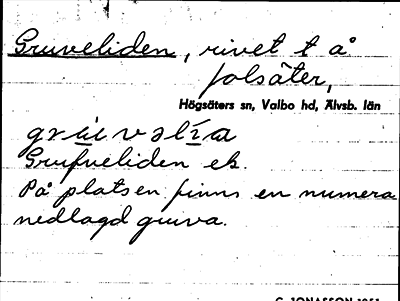 Gruveliden, rivet t å
jolsäter,
Högsäters sn, Valbo hd, Älvsb. län
Grufveliden ek.
På platsen finns en numera
nedlagd gruva.
C. JONASSON 1951